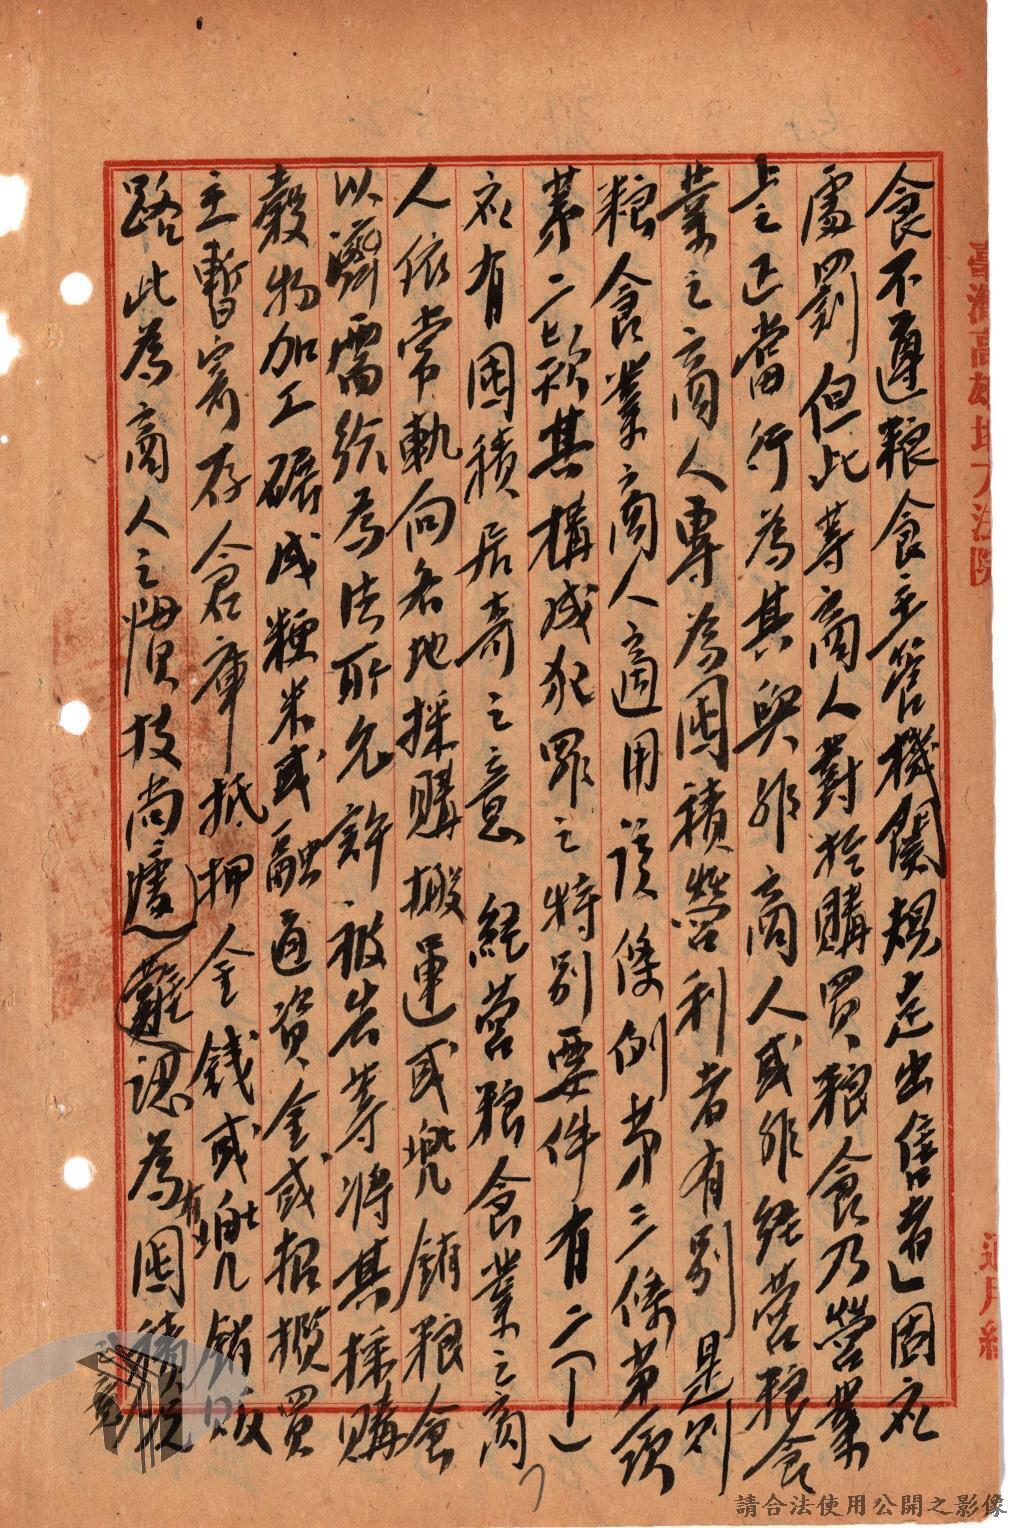 食不遵粮食主管機關規定出售者」固应
處罰但此等商人對於購買粮食乃營業
上之正當行為其與非商人或非經營粮食
業之商人專為囤積營利者有別是則
粮食業商人適用該條例第三條第項
第二款其構成犯罪之特別要件有二(一)
应有囤積居奇之意 經營粮食業之商
人依常軌向各地採購搬運或兜銷粮食
以濟需給為法所允許被告等將其採購
穀物加工碾成粳米或融通資金或招攬買
主暫寄存倉庫抵押金錢或兜銷販
路此為商人之慣技尚難認為有囤積
臺灣高雄地方法院
請合法使用公開之影像